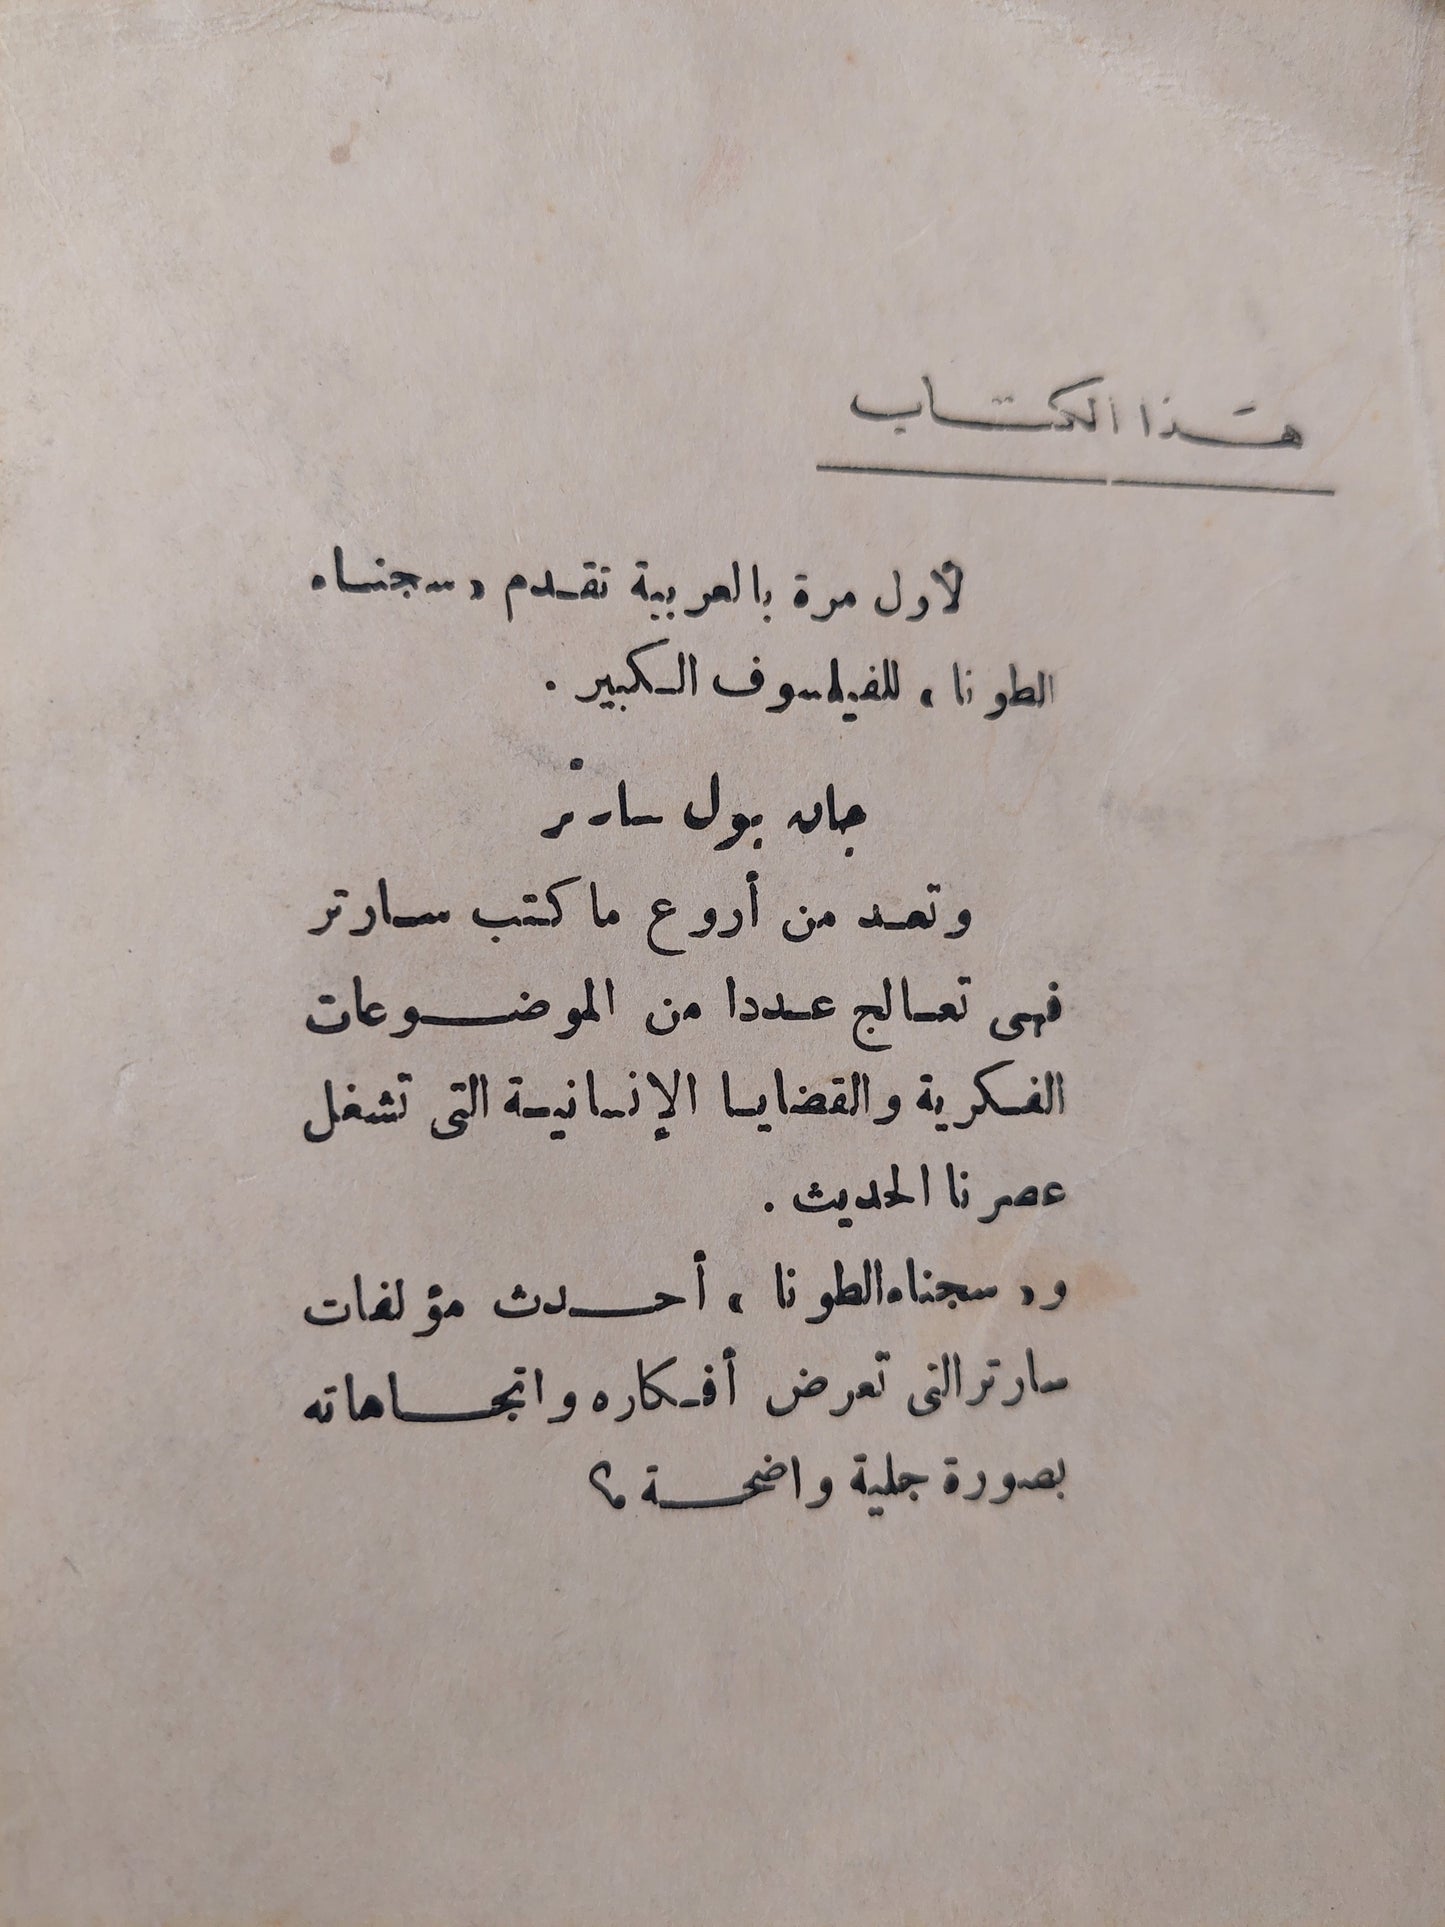 هذا الكتاب
لأول مرة بالعربية نقدم «سجناء
الطونا» للفيلسوف الكبير .
جان بول سارتر
وتعد من أروع ما كتب سارتر
فهى تعالج عددا من الموضوعات
الفكرية والقضايا الإنسانية التى تشغل
عصرنا الحديث .
و«سجناء الطونا» أحدث مؤلفات
سارتر التى تعرض أفكاره واتجاهاته
بصورة جلية واضحة ؟